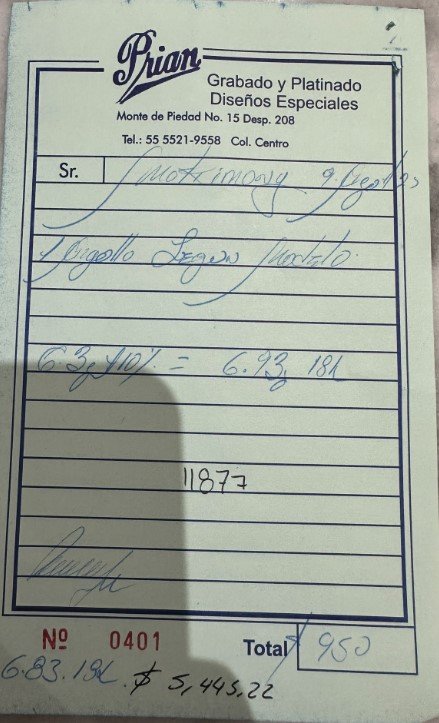 Prian
Grabado y Platinado
Diseños Especiales
Monte de Piedad No. 15 Desp. 208
Tel.: 55 5521-9558 Col. Centro
Sr. Matrimony
Segun Modelo
6.3g +10% = 6.93g 18k
11877
Nº 0401 Total $ 950
6.83.18k. $ 5,445,22